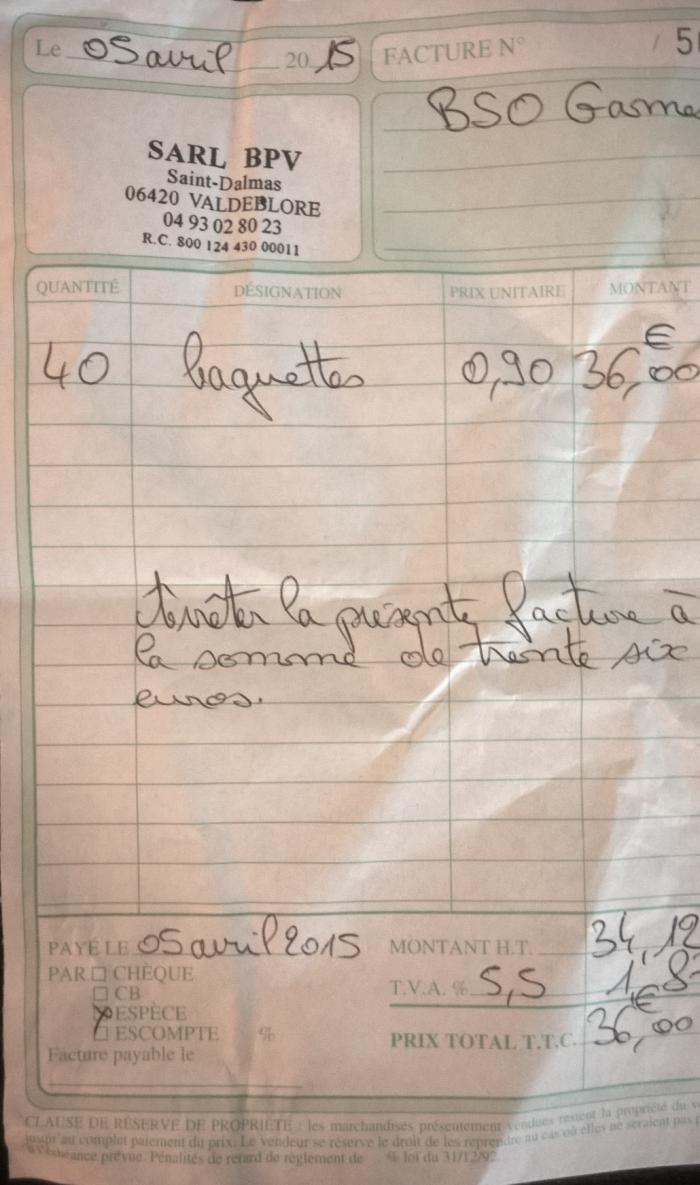 Le 05 avril 2015
FACTURE N° / 50
SARL BPV
Saint-Dalmas
06420 VALDEBLORE
04 93 02 80 23
R.C. 800 124 430 00011
BSO
QUANTITÉ DÉSIGNATION PRIX UNITAIRE MONTANT
€
40 baguettes 0,90 36,00
Arrêter la présente facture à
la somme de trente six
euros.
PAYÉ LE 05 avril 2015 MONTANT H.T. 34,12
PAR ☐ CHÈQUE
☐ CB T.V.A. % 5,5 1,8
☒ ESPÈCE €
☐ ESCOMPTE % PRIX TOTAL T.T.C. 36,00
Facture payable le
CLAUSE DE RÉSERVE DE PROPRIÉTÉ : les marchandises présentement vendues restent la propriété du
jusqu'au complet paiement du prix. Le vendeur se réserve le droit de les reprendre au cas où elles ne seraient pas
échéance prévue. Pénalités de retard de règlement de % loi du 31/12/92